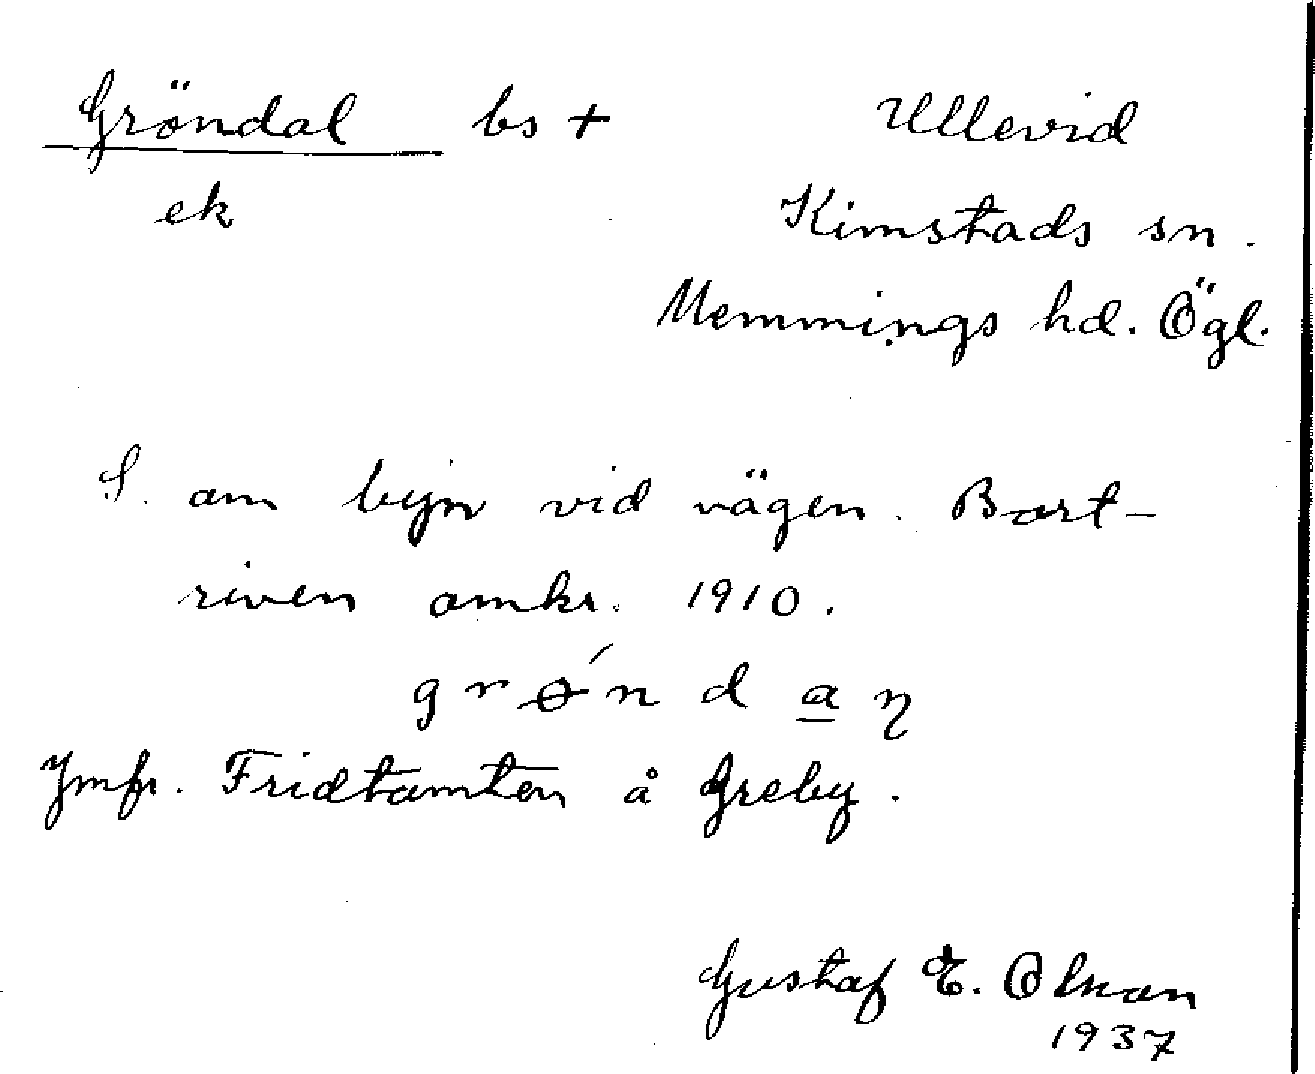 Gröndal bs + Ullevid
ek Kimstads sn.
Memmings hd. Ögl.
S. om byn vid vägen. Bort-
riven omkr. 1910.
grǿndaη
Jmfr. Fridtomten å Greby.
Gustaf E. Olson
1937